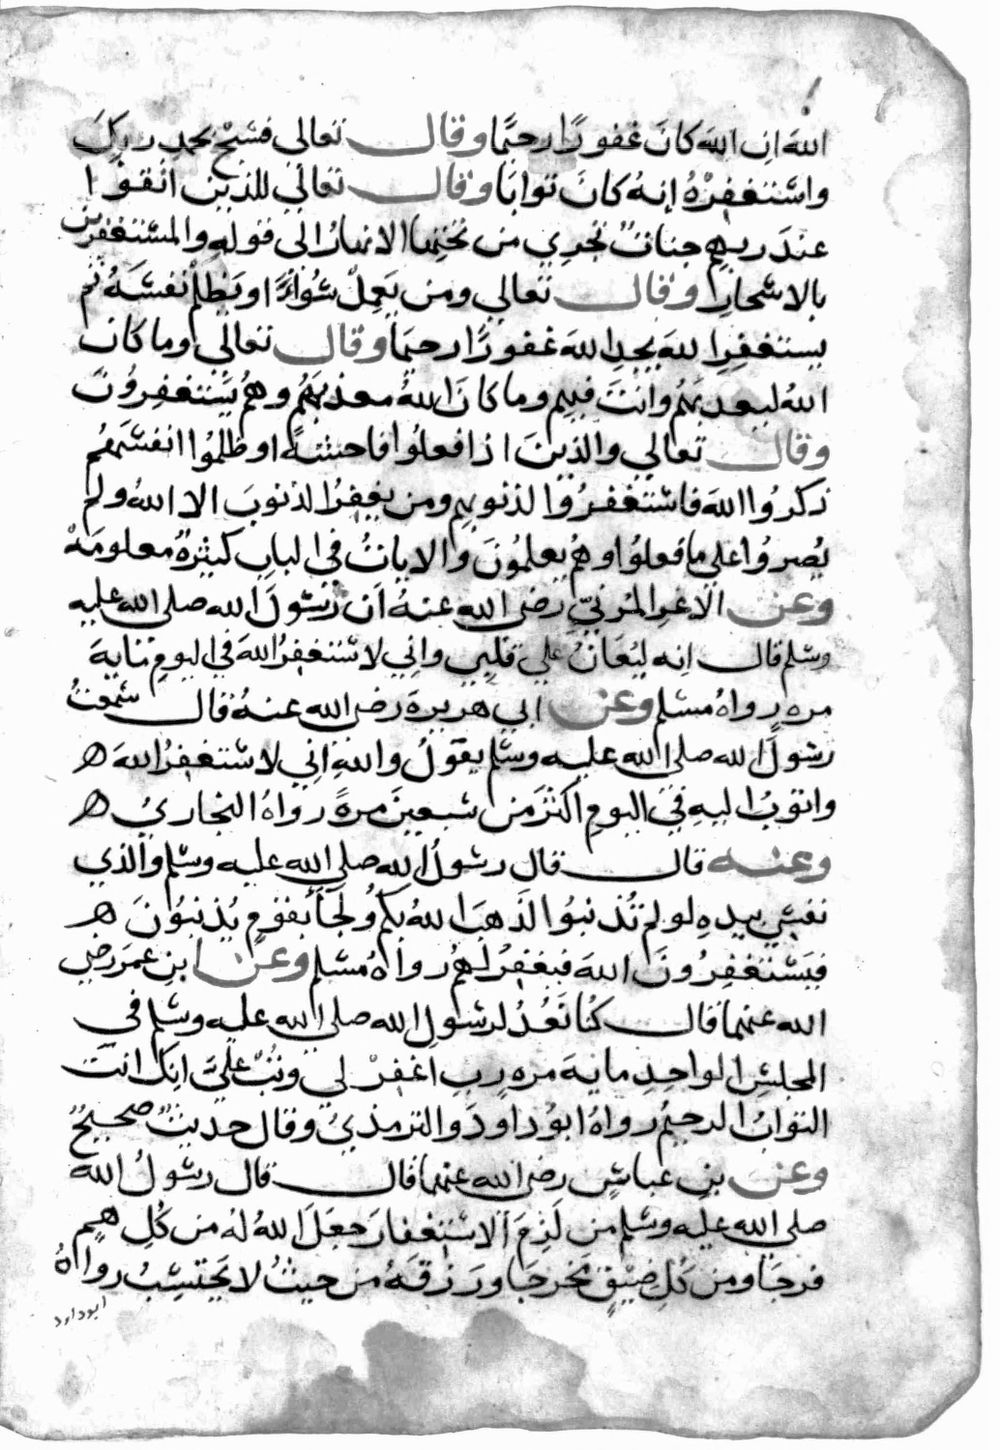 الله ان الله كان غفورا رحيما وقال تعالى فسبح بحمد ربك
واستغفره إنه كان توابا وقال تعالى للذين اتقوا
عند ربهم جنات تجري من تحتها الانهار الى قوله والمستغفرين
بالاسحار وقال تعالى ومن يعمل سوءا او يظلم نفسه ثم
يستغفر الله يجد الله غفورا رحيما وقال تعالى وما كان
الله ليعذبهم وانت فيهم وما كان الله معذبهم وهم يستغفرون
وقال تعالى والذين اذا فعلوا فاحشة او ظلموا انفسهم
ذكروا الله فاستغفروا لذنوبهم ومن يغفر الذنوب الا الله ولم
يصروا على ما فعلوا وهم يعلمون والايات في الباب كثيرة معلومة
وعن الاغر المزني رضى الله عنه ان رسول الله صلى الله عليه
وسلم قال انه ليغان على قلبي واني لاستغفر الله في اليوم ماية
مره رواه مسلم وعن ابي هريرة رضى الله عنه قال سمعت
رسول الله صلى الله عليه وسلم يقول والله اني لاستغفر الله ه
واتوب اليه في اليوم اكثر من سبعين مرة رواه البخاري ه
وعنه قال قال رسول الله صلى الله عليه وسلم والذي
نفسي بيده لو لم تذنبوا لذهب الله بكم ولجا بقوم يذنبون ه
فيستغفرون الله فيغفر لهم رواه مسلم وعن ابن عمر رضى
الله عنهما قال كنا نعد لرسول الله صلى الله عليه وسلم في
المجلس الواحد ماية مره رب اغفر لي وتب علي انك انت
التواب الرحيم رواه ابو داود والترمذي وقال حديث صحيح
وعن بن عباس رضى الله عنهما قال قال رسول الله
صلى الله عليه وسلم من لزم الاستغفار جعل الله له من كل هم
فرجا ومن كل ضيق مخرجا ورزقه من حيث لا يحتسب رواه
ابو داود